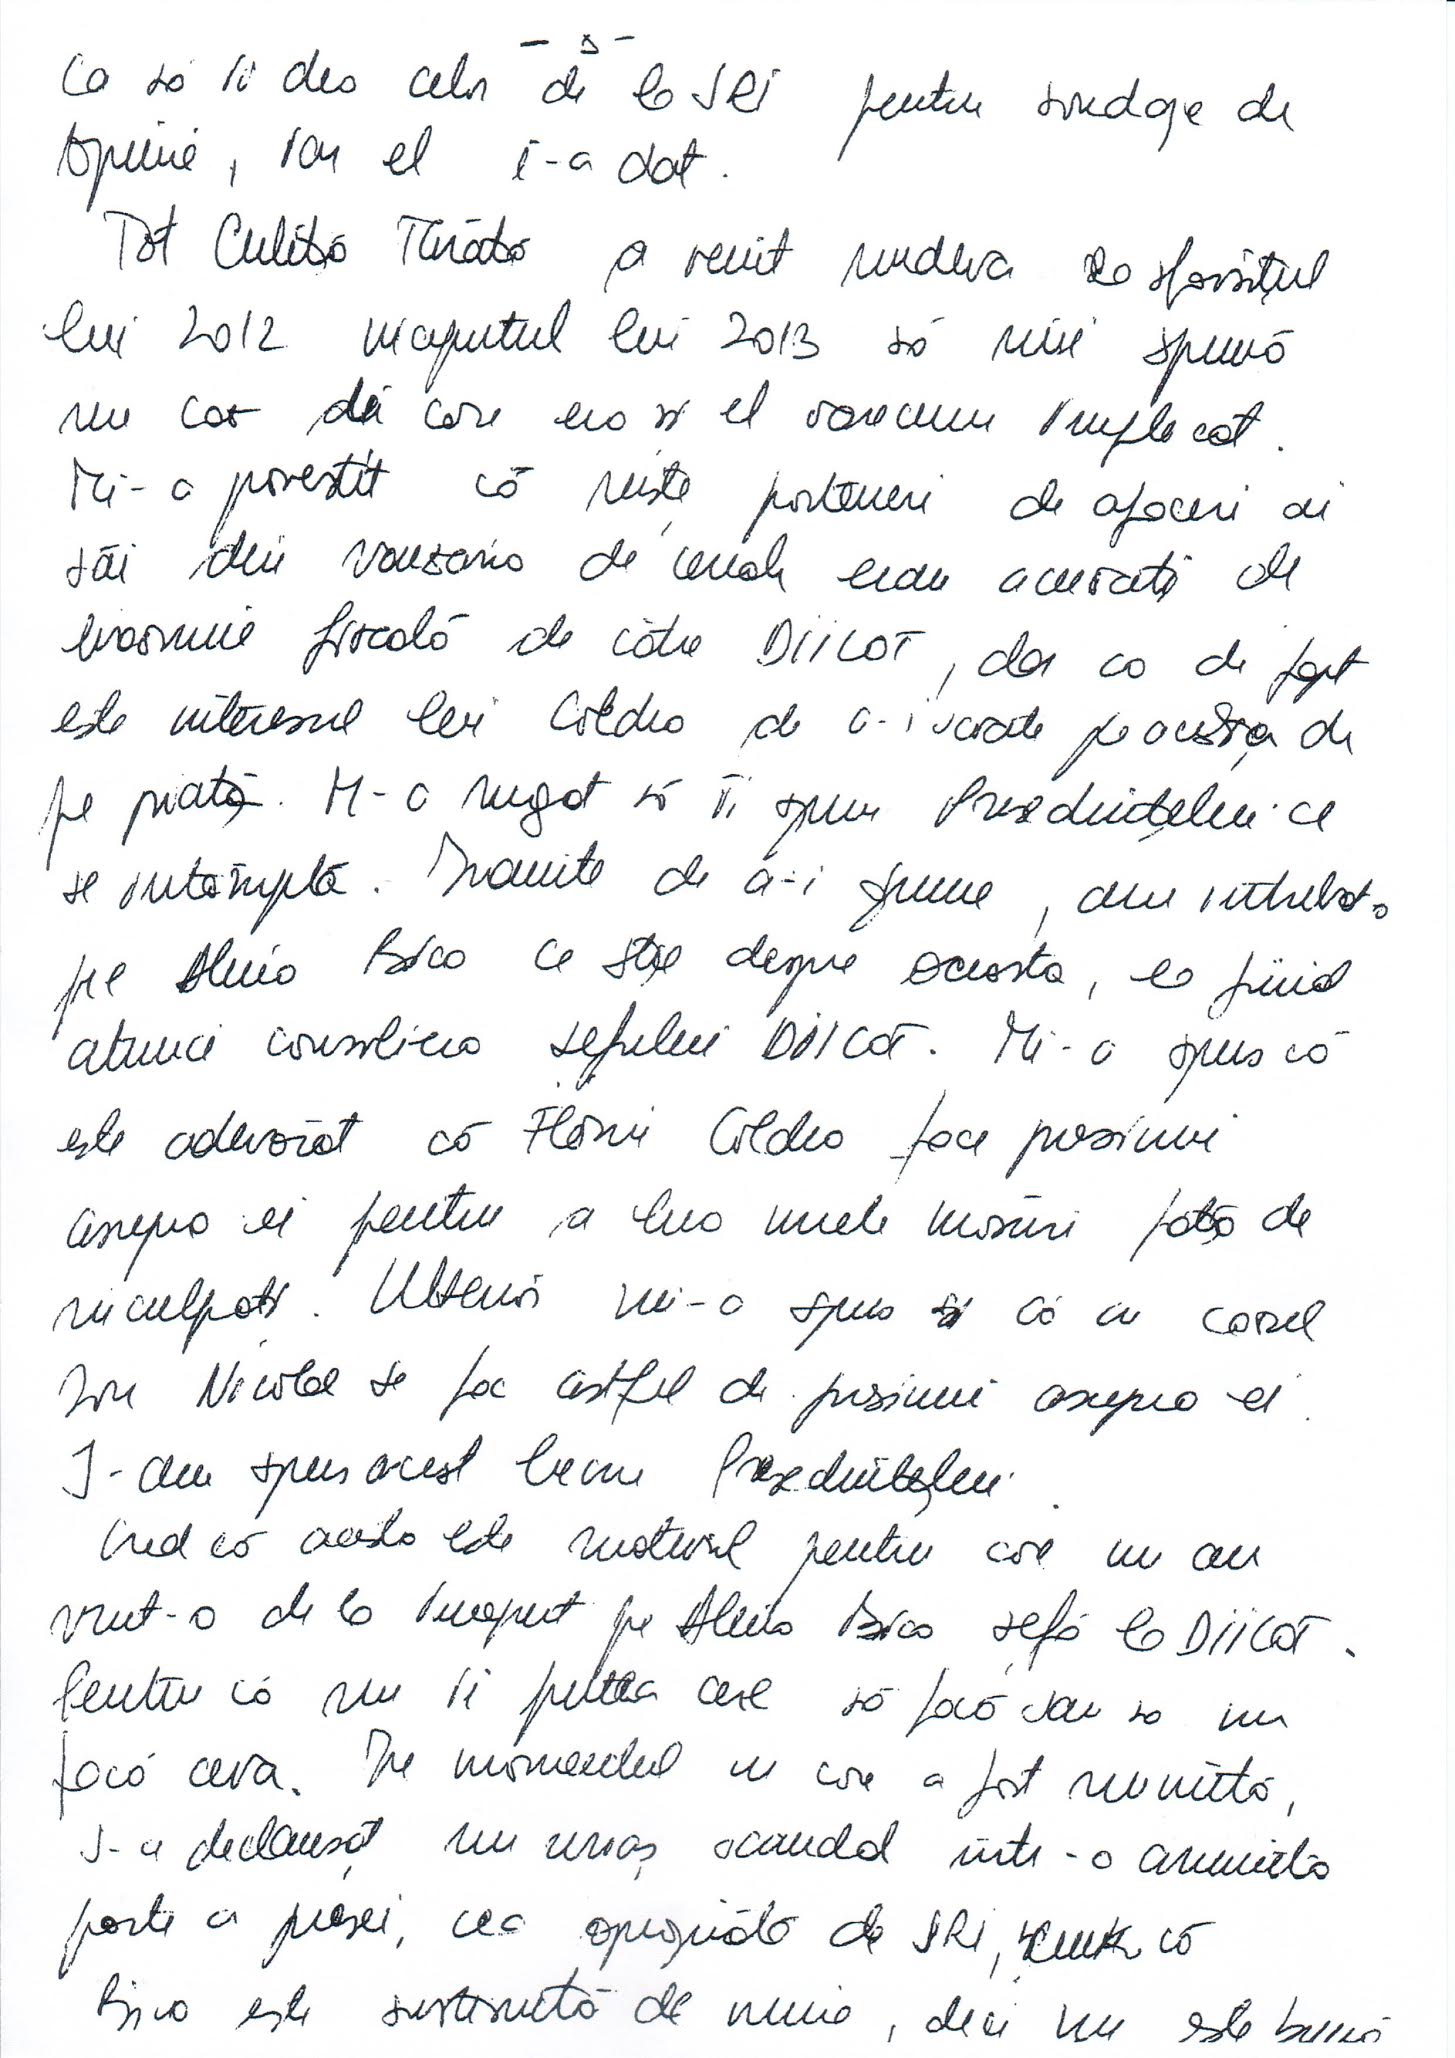 - 5 -
Ca să îi dea celor de la SRI pentru sondaje de
opinie, iar el i-a dat.
Tot Culiță Tărâță a venit undeva la sfârșitul
lui 2012 începutul lui 2013 să îmi spună
un caz în care era și el oarecum implicat.
Mi-a povestit că niște parteneri de afaceri ai
săi din vânzarea de cereale erau acuzați de
evaziune fiscală de către DIICOT, dar ca de fapt
este interesul lui Coldea de a-i scoate pe aceștia de
pe piață. M-a rugat să îi spun Președintelui ce
se întâmplă. Înainte de a-i spune, am întrebat-o
pe Alina Bica ce știe despre aceasta, ea fiind
atunci consiliera șefului DIICOT. Mi-a spus că
este adevărat că Florin Coldea face presiuni
asupra ei pentru a lua unele măsuri față de
inculpați. Ulterior mi-a spus și că în cazul
Ion Niculae se fac astfel de presiuni asupra ei.
I-am spus acest lucru Președintelui.
Cred că acesta este motivul pentru care nu au
vrut-o de la început pe Alina Bica șefă la DIICOT.
Pentru că nu îi putea cere să facă sau sa nu
facă ceva. Din momentul în care a fost numită,
s-a declanșat un uriaș scandal într-o anumită
parte a presei, cea apropiată de SRI, cum că
Bica este susținută de mine, deci nu este bună